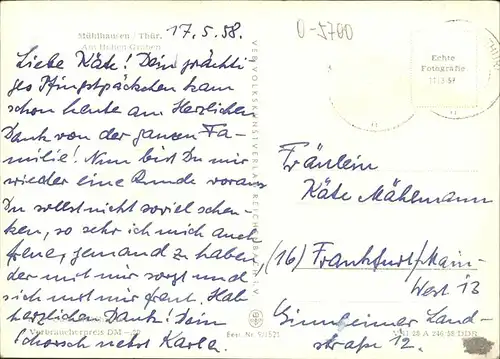 Mühlhausen / Thür.
Am Hohen Graben
17.5.58.
0-5700
Liebe Käte! Dein prächti-
ges Pfingstpäckchen kam
schon heute an. Herzlichen
Dank von der ganzen Fa-
milie! Nun bist Du mir
wieder eine Runde voraus.
Du sollst nicht soviel schen-
ken, so sehr ich mich auch
freue, jemand zu haben,
der mit mir sorgt und
sich mit mir freut. Hab
herzlichen Dank! Dein
Schorsch nebst Karla.
Verbraucherpreis DM
Best.-Nr.
VEB VOLKSKUNSTVERLAG REICHENBACH I. V.
Echte
Fotografie
Fräulein
Käte Mählmann
(16) Frankfurt/Main-
West 13
Ginnheimer Land-
straße 12.